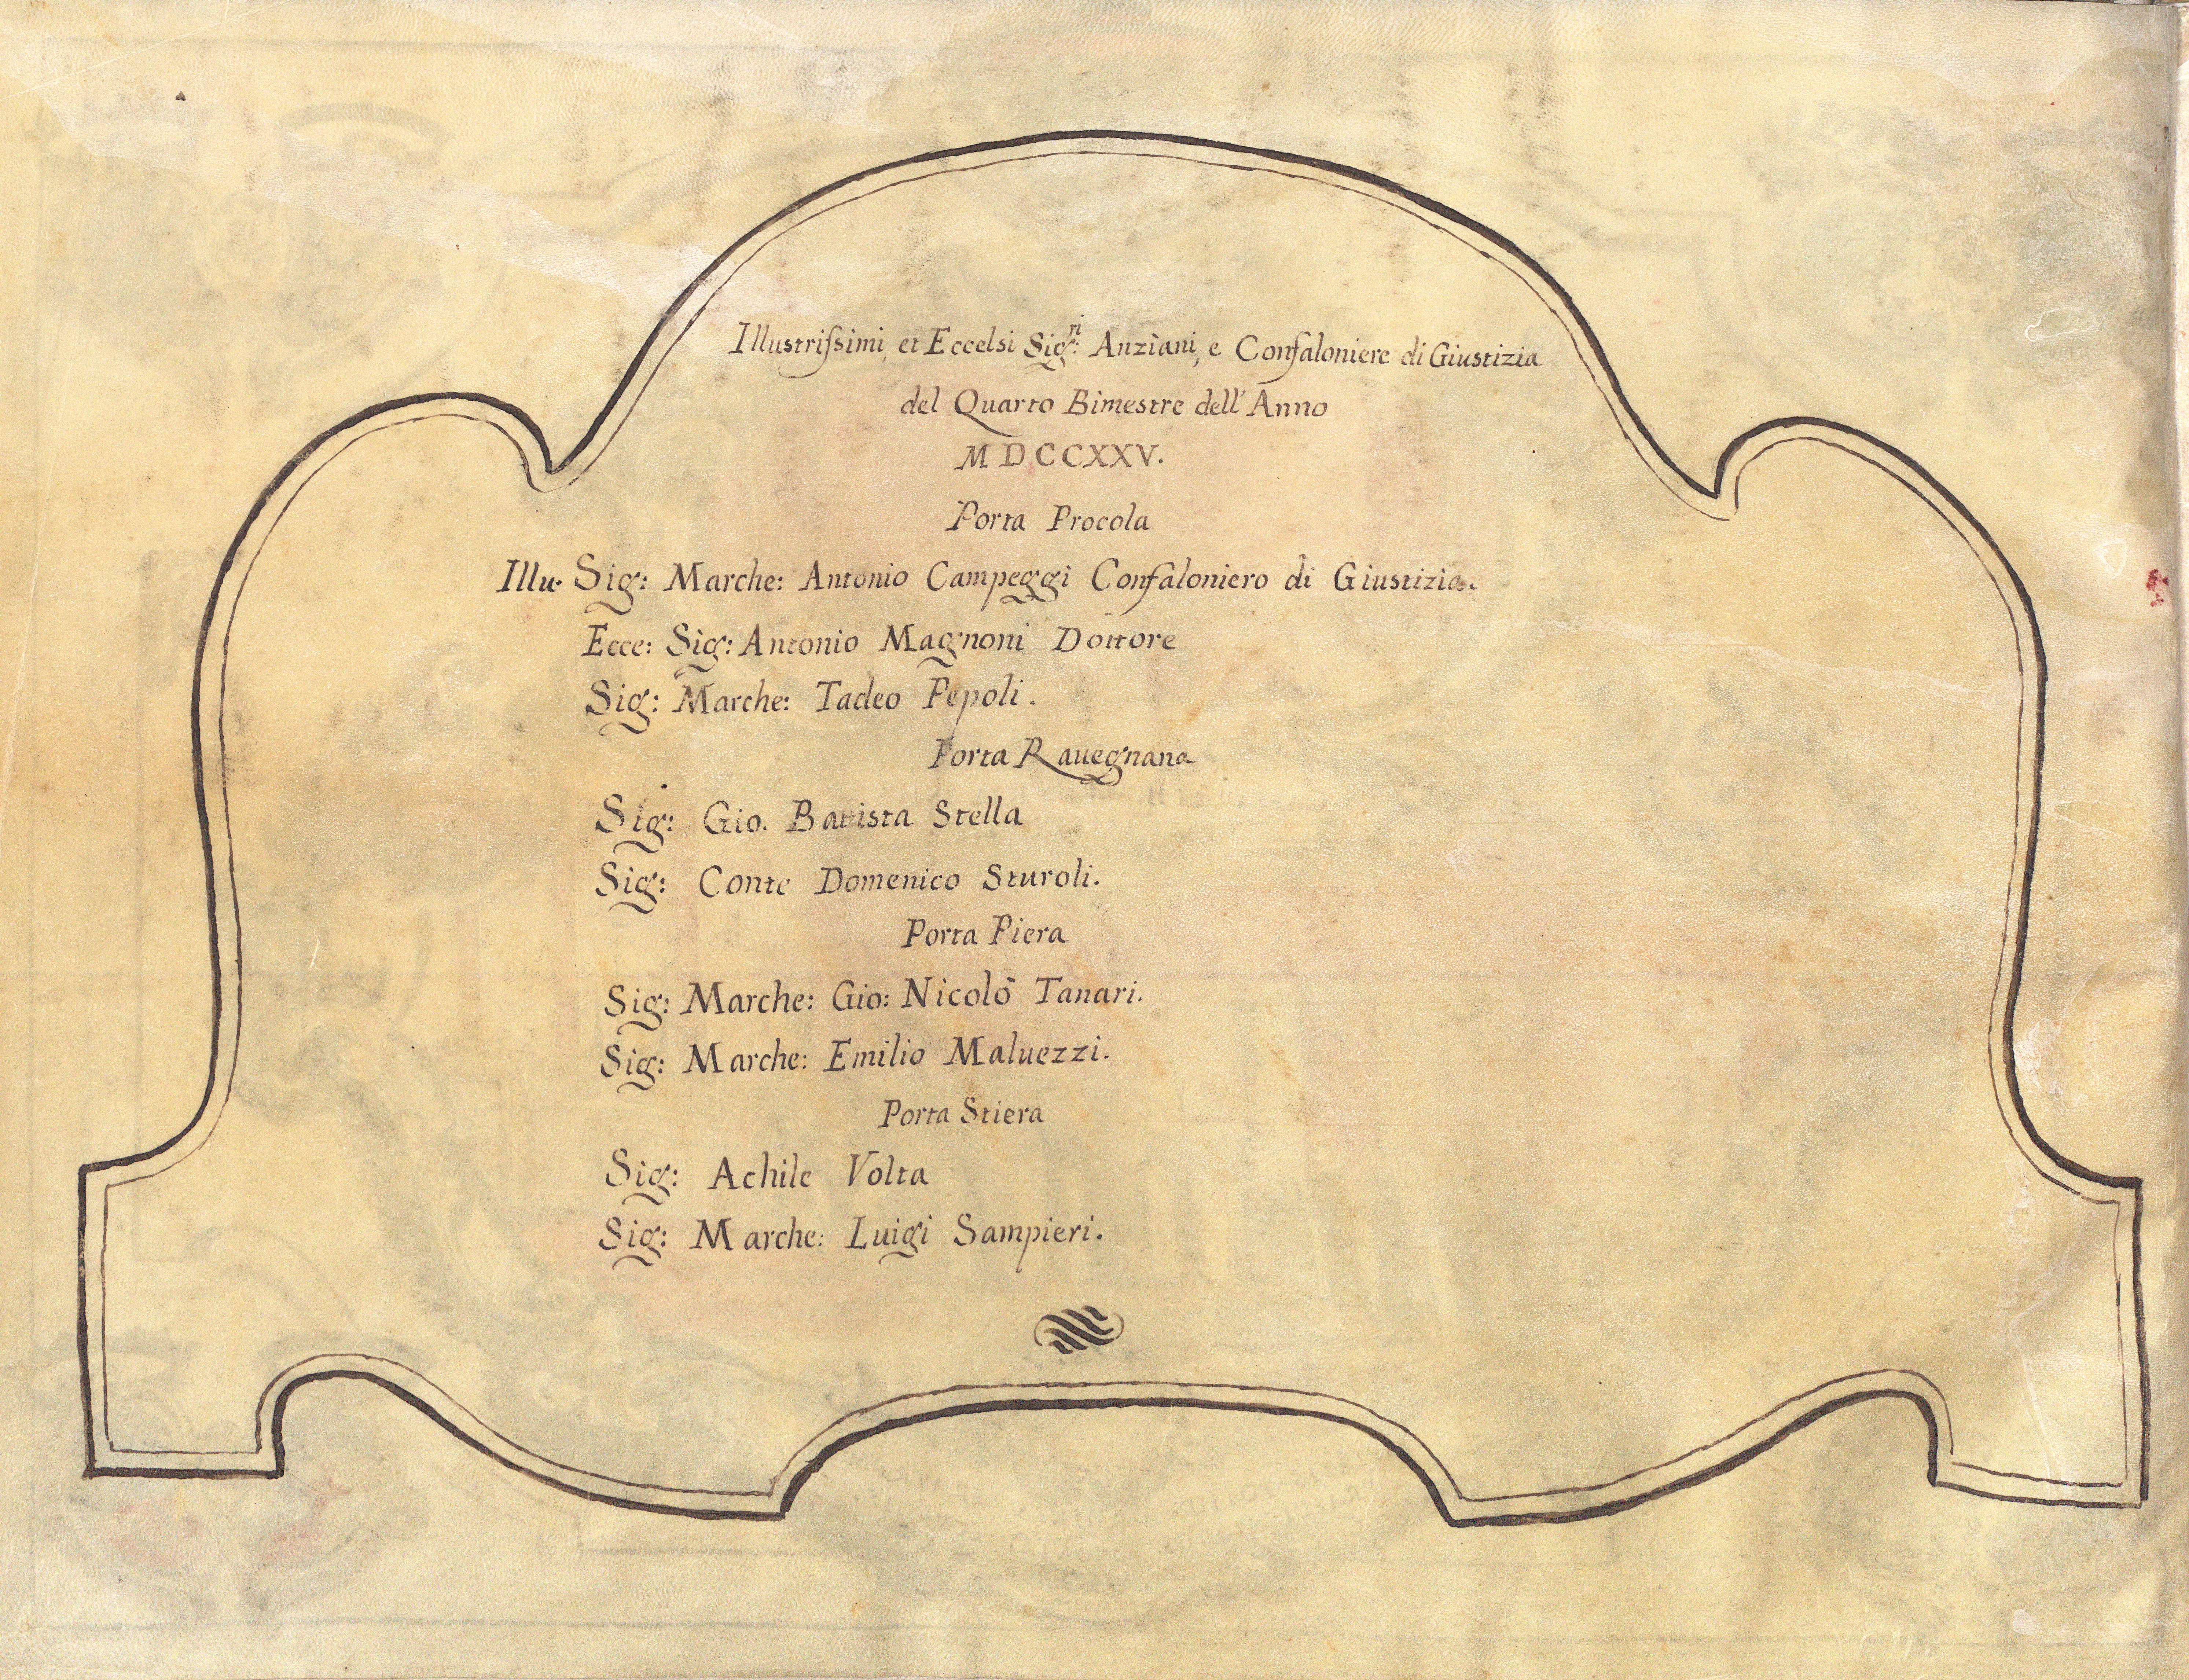 Illustrissimi, et Eccelsi Sig:ri Anziani, e Confaloniere di Giustizia
del Quarto Bimestre dell' Anno
MDCCXXV.
Porta Procola
Illu. Sig: Marche: Antonio Campeggi Confaloniero di Giustizia.
Ecce: Sig: Antonio Magnoni Dottore
Sig: Marche: Tadeo Pepoli.
Porta Rauegnana
Sig: Gio. Batista Stella
Sig: Conte Domenico Sturoli.
Porta Piera
Sig: Marche: Gio: Nicolò Tanari.
Sig: Marche: Emilio Maluezzi.
Porta Stiera
Sig: Achile Volta
Sig: Marche: Luigi Sampieri.